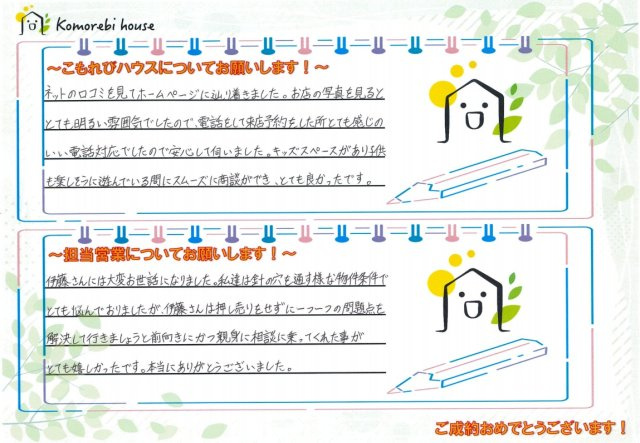 Komorebi house
～こもれびハウスについてお願いします！～
ネットの口コミを見てホームページに辿り着きました。お店の写真を見ると
とても明るい雰囲気でしたので、電話をして来店予約をした所とても感じの
いい電話対応でしたので安心して伺いました。キッズスペースがあり子供
も楽しそうに遊んでいる間にスムーズに商談ができ、とても良かったです。
～担当営業についてお願いします！～
伊藤さんには大変お世話になりました。私達は針の穴を通す様な物件条件で
とても悩んでおりましたが、伊藤さんは押し売りをせずに一つ一つの問題点を
解決して行きましょうと前向きにかつ親身に相談に乗ってくれた事が
とても嬉しかったです。本当にありがとうございました。
ご成約おめでとうございます！